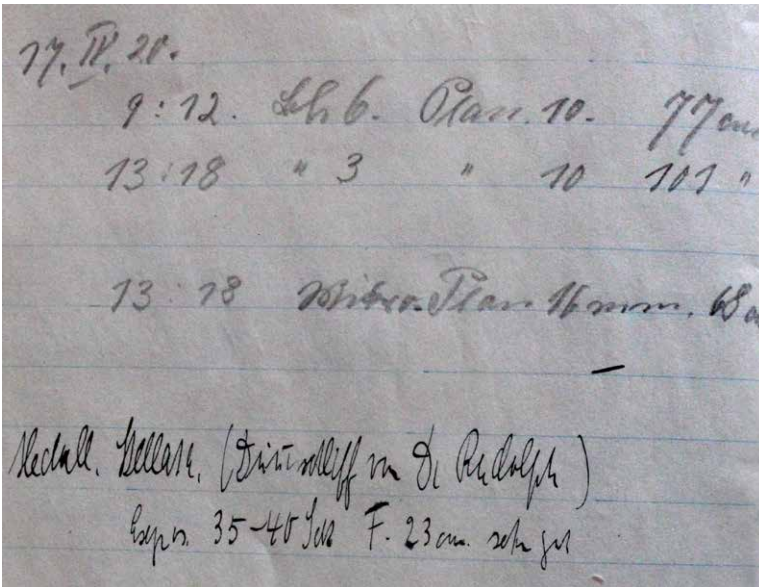 17. IV. 20.
9:12. 6. Plan. 10. 77 cm
13:18 " 3 " 10 101 "
13:18 Mikro. Plan 16 mm. 68
(Dünnschliff von Dr Rudolph)
Expos. 35-40 Sek F. 23 cm. sehr gut